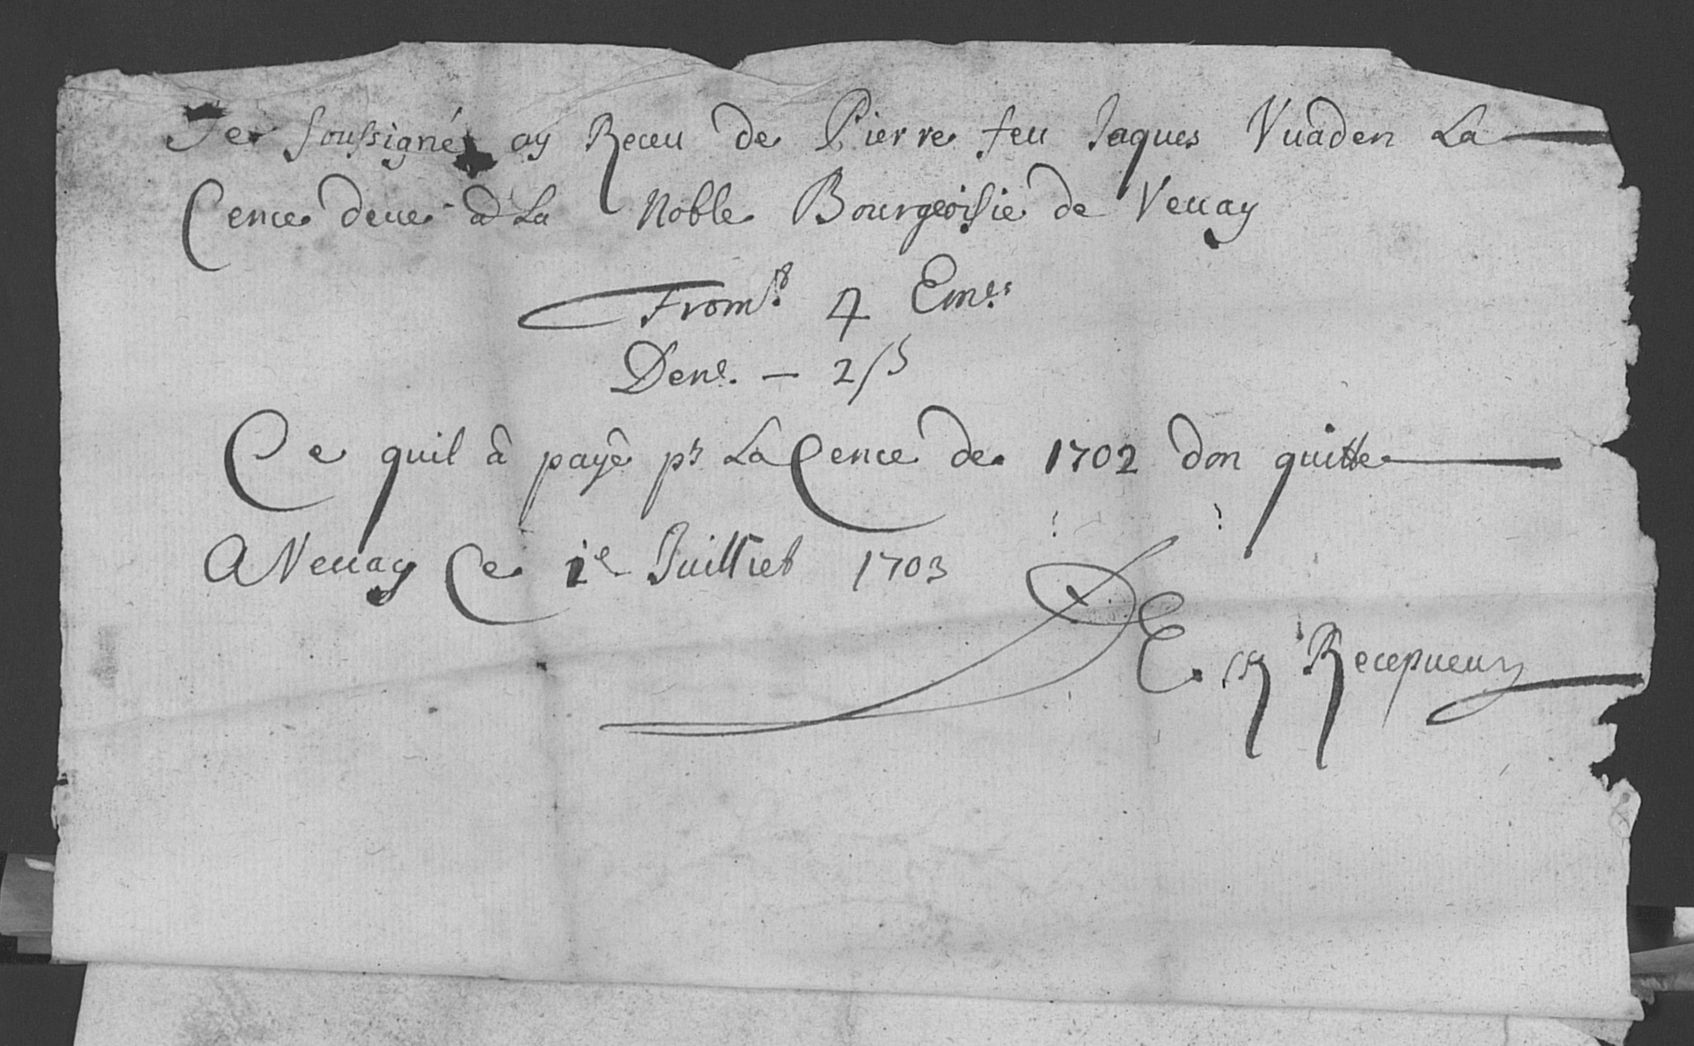 Je soussigné ay Receu de Pierre feu Jaques Vuaden La
Cence deue a La Noble Bourgeoisie de Veuay
From.t 4 Em.es
Den.e — 2 ß
Ce quil â payê pr La Cence de 1702 don quitte
A Veuay Ce 1e Juilliet 1703
Recepueur